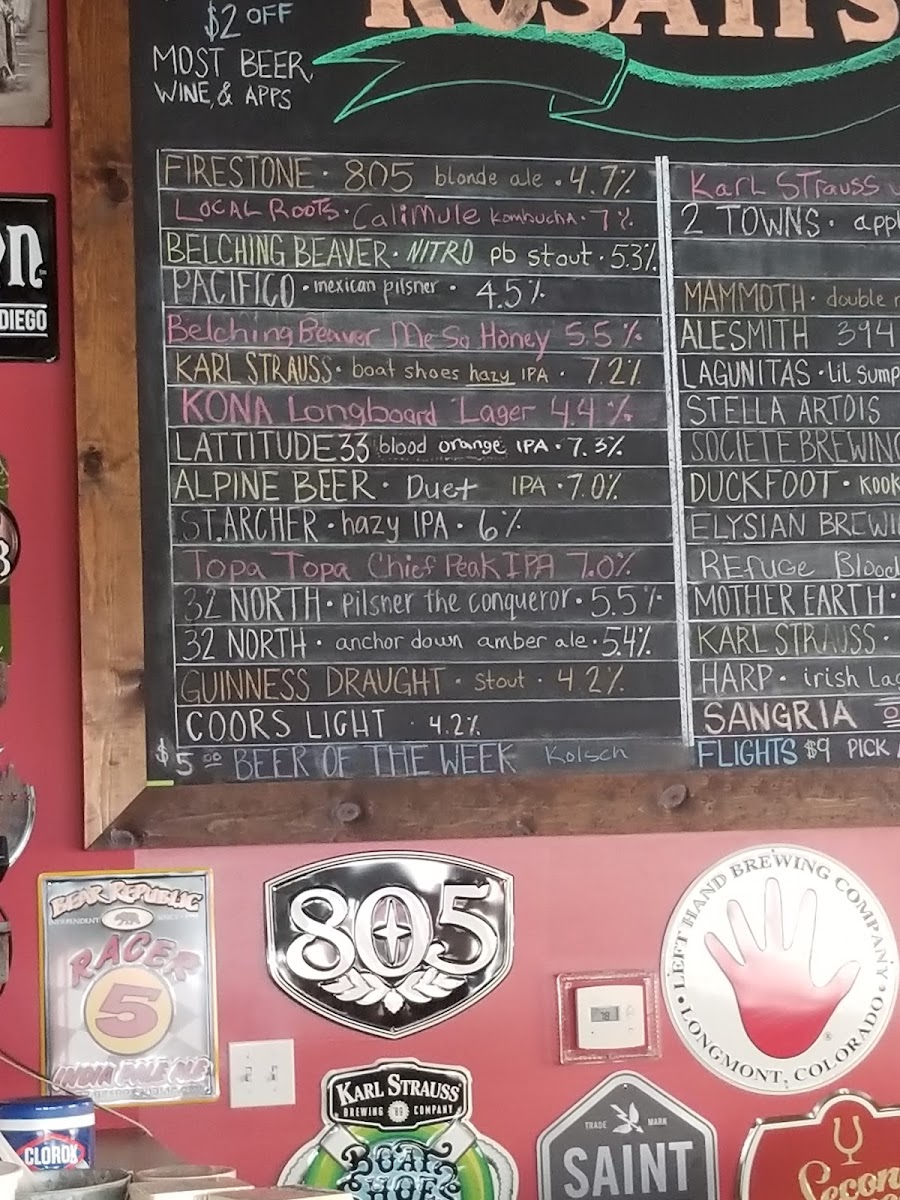 $2 OFF
MOST BEER,
WINE, & APPS
ROSATI'S
FIRESTONE · 805 blonde ale · 4.7%
LOCAL ROOTS · CaliMule KOMBUCHA · 7%
BELCHING BEAVER · NITRO pb stout · 5.3%
PACIFICO · mexican pilsner · 4.5%
Belching Beaver Me So Honey 5.5%
KARL STRAUSS · boat shoes hazy IPA · 7.2%
KONA Longboard Lager 4.4%
LATTITUDE 33 blood orange IPA · 7.3%
ALPINE BEER · Duet IPA · 7.0%
ST. ARCHER · hazy IPA · 6%
Topa Topa Chief Peak IPA 7.0%
32 NORTH · Pilsner the conqueror · 5.5%
32 NORTH · anchor down amber ale · 5.4%
GUINNESS DRAUGHT · stout · 4.2%
COORS LIGHT · 4.2%
$5.00 BEER OF THE WEEK Kolsch
Karl Strauss
2 TOWNS · appl
MAMMOTH · double
ALESMITH 394
LAGUNITAS · Lil Sump
STELLA ARTOIS
SOCIETE BREWING
DUCKFOOT · KOOK
ELYSIAN BREWI
REfuge Blood
MOTHER EARTH ·
KARL STRAUSS ·
HARP · irish Lag
SANGRIA
FLIGHTS $9 PICK
DIEGO
BEAR REPUBLIC
INDEPENDENT
RACER
5
INDIA PALE ALE
805
LEFT HAND BREWING COMPANY
LONGMONT, COLORADO
78
KARL STRAUSS
BREWING '89 COMPANY
BOAT
SHOES
TRADE MARK
SAINT
Secon
CLOROX